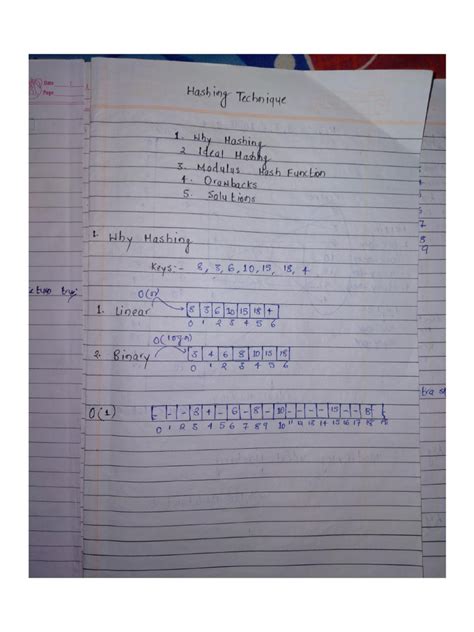 Date
Page
Hashing Technique
1. Why Hashing
2 Ideal Hashing
3. Modulus Hash Function
4. Drawbacks
5. Solutions
1. Why Hashing
Keys:- 8, 3, 6, 10, 15, 18, 4
O(n)
1. Linear 8 3 6 10 15 18 4
0 1 2 3 4 5 6
O(logn)
2. Binary 3 4 6 8 10 15 18
0 1 2 3 4 5 6
O(1) - - - 3 4 - 6 - 8 - 10 - - - - 15 - - 18
0 1 2 3 4 5 6 7 8 9 10 11 12 13 14 15 16 17 18 19